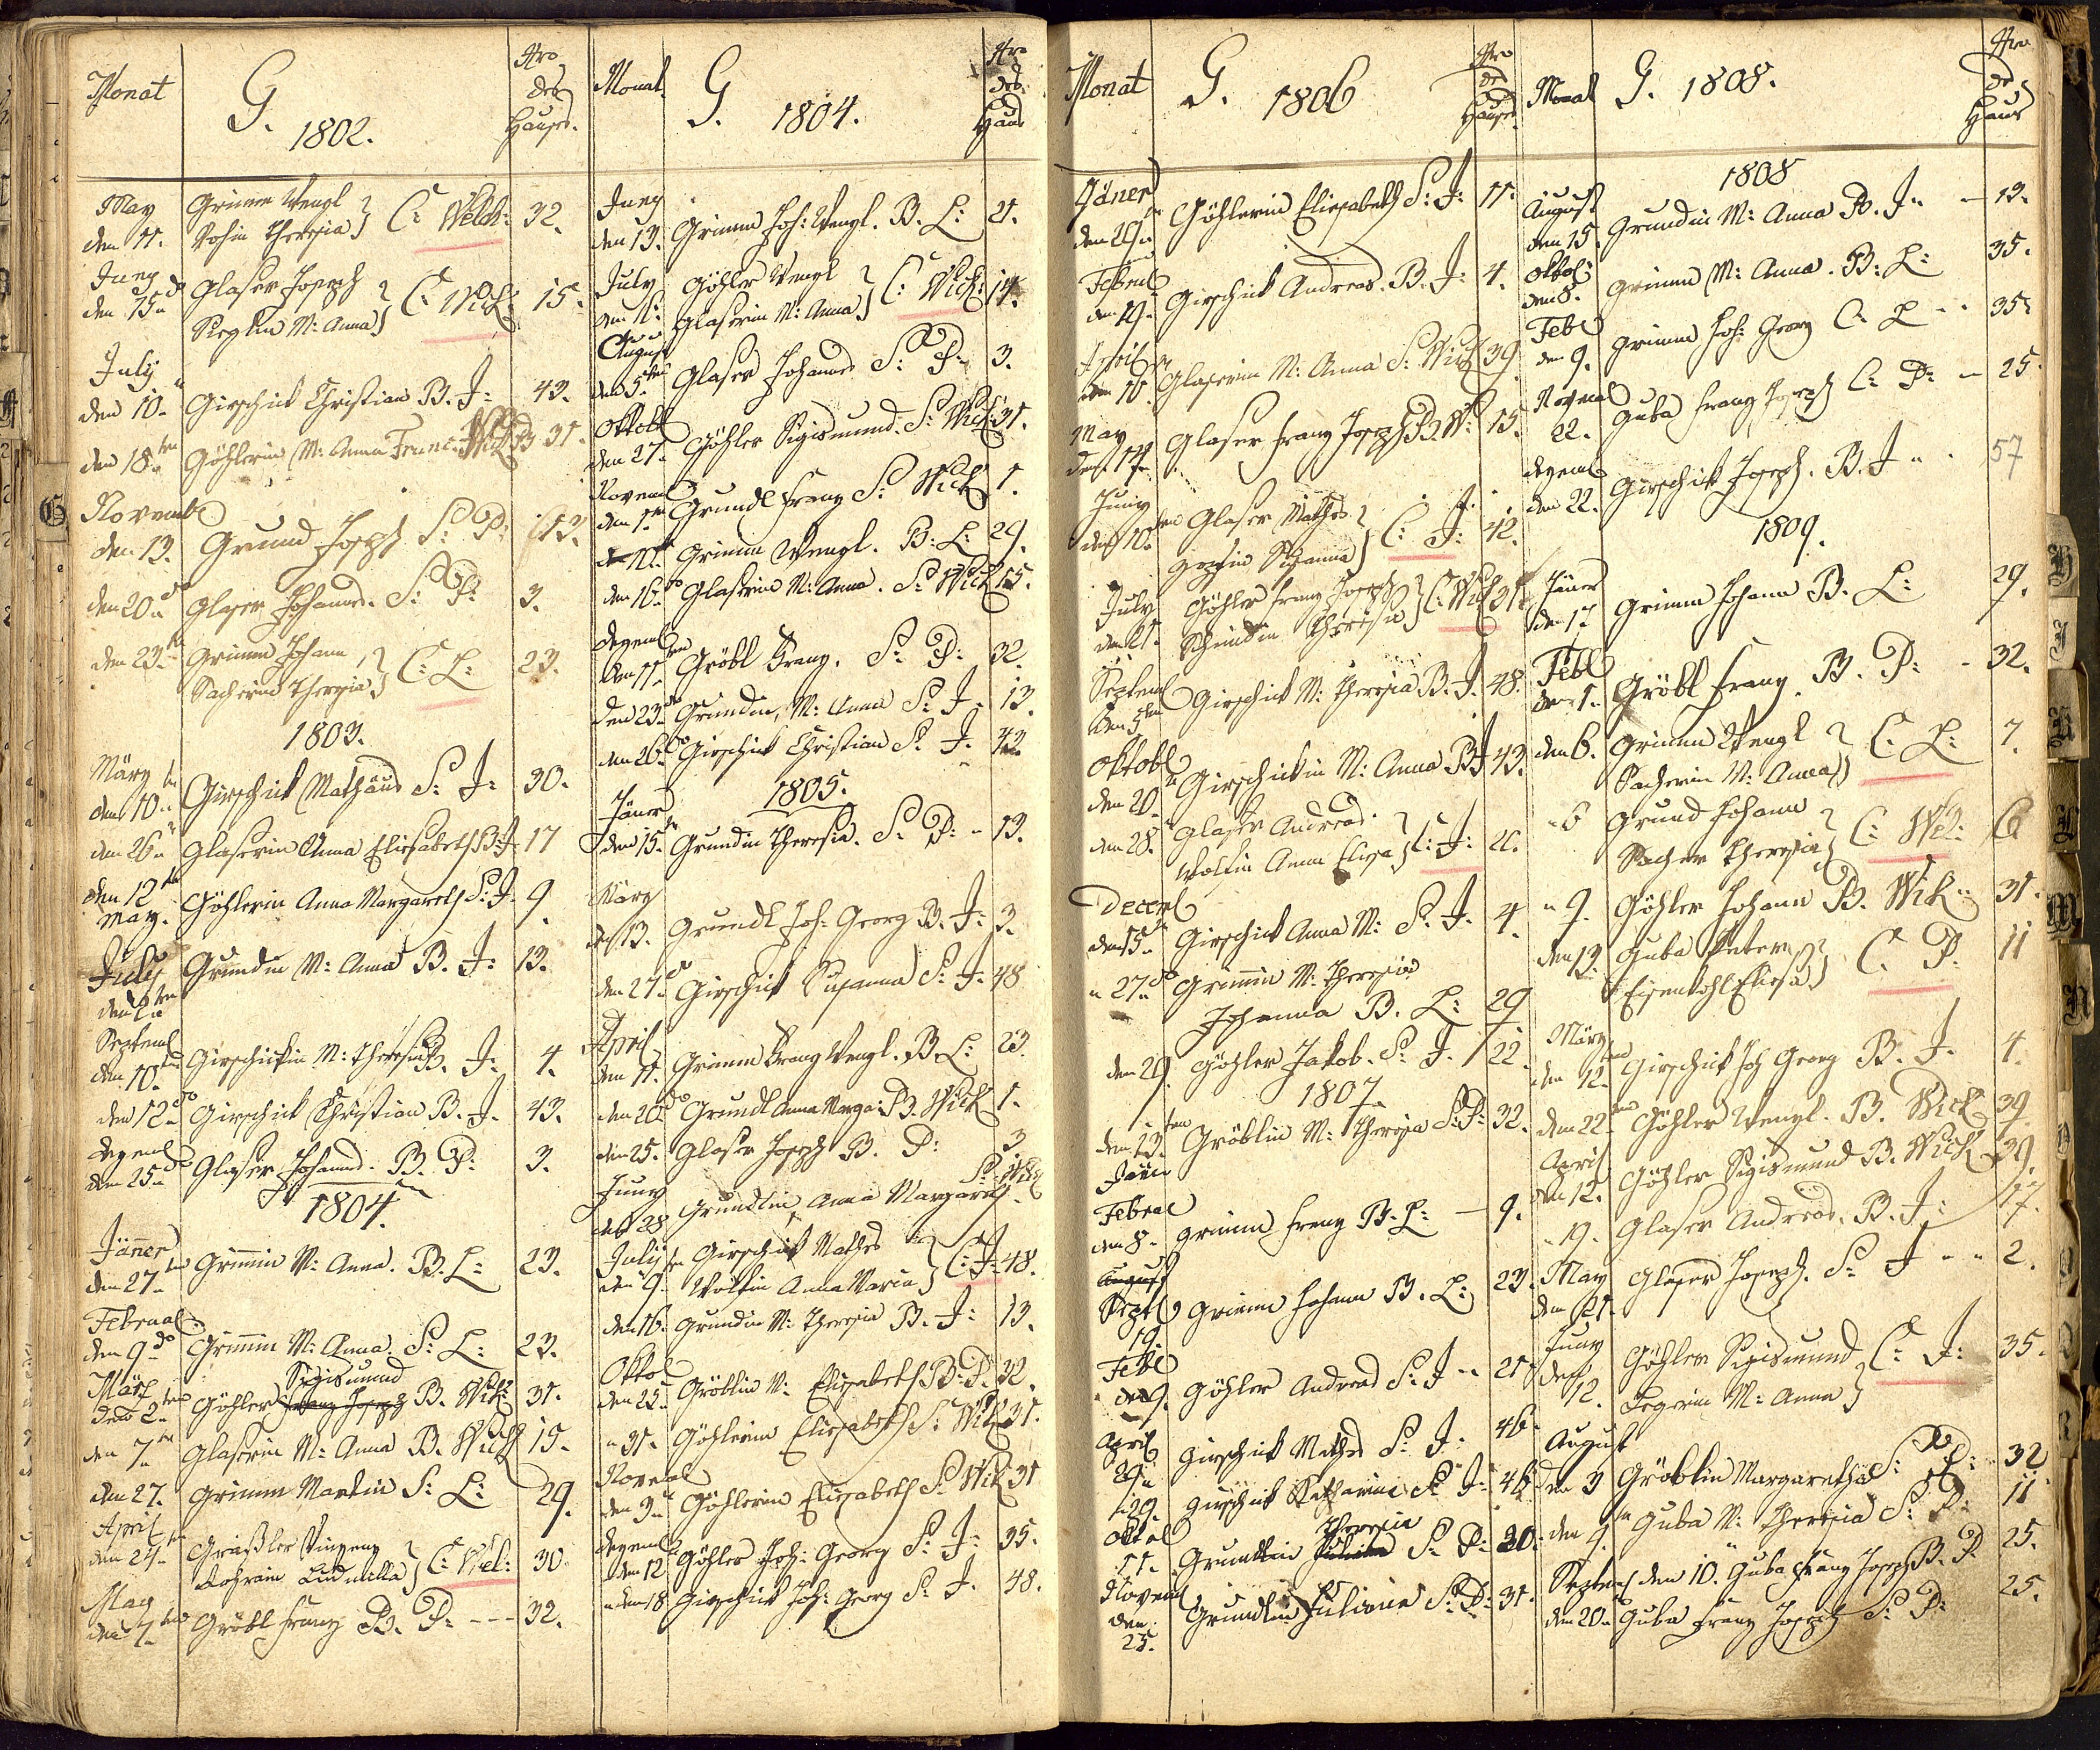 Monat G. 1802. Nro des Hauses.
May Grimm Wenzl
den 11. Theresia C: Welch: 32.
Juny Glaser Joseph
den 15. M: Anna C: Wick: 15.
July
den 10. Girschick Christian B. J: 43.
den 18ten Göhlerin M: Anna Wick 31.
Novemb
den 13. Grund Joseph S: P: 13.
den 20. Glaser Johannes. S: P: 3.
den 23. Grimm Johann
Sacherin Theresia C: L: 23.
1803.
März
den 10. Girschick Mathäus S: J: 30.
den 26. Glaserin Anna Elisabeth B: J: 17
den 12
May. Göhlerin Anna Margareth S: J. 9
July Grundin M: Anna B. J: 13.
Septemb
den 10. Girschickin M: Theresia B. J: 4.
den 12. Girschick Christian B. J. 43.
Dezemb
den 25. Glaser Johannes. B. P. 3.
1804.
Jänner
den 27. Grimmin M: Anna. B. L: 23.
Februar
den 9. Grimmin M: Anna. S: L: 23.
März Sigismund
den 2. Göhler Franz Joseph B. Wick: 31.
den 7. Glaserin M: Anna B. Wick 15.
den 27. Grimm Martin S: L: 29.
April
den 24. Graßler Vinzenz
Ludmilla C: Wel: 30
May
den 7. Gröbl Franz B. P: - - - 32.
Monat G. 1804. Nro des Haus
Juny
den 13. Grimm Joh: Wenzl. B. L: 21.
July Göhler Wenzl
Glaserin M: Anna C: Wick: 14.
August
den 5ten Glaser Johannes S: P. 3.
Oktob
den 27. Göhler Sigismund. S: Wick: 31.
Novemb
den 1. Grundl Franz S: Wick 1.
Grimm Wenzl. B: L: 29.
den 16. Glaserin M: Anna. S: Wick 15.
Dezemb
den 11. Gröbl Franz. S: P: 32.
den 23. Grundin, M: Anna S: J. 13.
den 26. Girschick Christian S: J. 43.
1805.
Jäner
den 15. Grundin Theresia. S: P: - 13.
März
den 13. Grundl Joh: Georg B. J: 3.
den 27. Girschick Susanna S: J. 48
April
den 11. Grimm Franz Wenzl. B. L: 23.
den 20. Grundl Anna Marga: B. Wick 1.
den 25. Glaser Joseph B. P: 3
Juny S: Wick
den 28 Grundlin Anna Margareth
July Girschick Mathes
den 9. Woltin Anna Maria C: J: 48.
den 16. Grundin M: Theresia B. J: 13.
Oktob
den 22. Gröblin M: Elisabeth B: P: 32.
" 31. Göhlerin Elisabeth S: Wick 31.
Novemb
den 3. Göhlerin Elisabeth S: Wick 31
Dezemb
den 12 Göhler Joh: Georg S: J: 35.
den 18 Girschick Joh: Georg S: J. 48.
Monat G. 1806 Nro des Hauses.
Jäner
Göhlerin Elisabeth S: J: 11.
Feber
den 19. Girschick Andreas. B. J: 4.
April
den 10. Glaserin M: Anna S: Wick 39.
May
Glaser Franz Joseph B. W: 15.
Juny
den 10. Glaser Mathes
Susanna C: J: 42.
July Göhler Franz Joseph
den 21. Theresia C: Wick 31.
Septemb
den 5ten Girschick M: Theresia B. J. 48.
Oktob
den 20. Girschickin M: Anna B J 43.
den 28. Glaser Andreas.
Woltin Anna Elisa C: J: 21.
Decemb
den 15. Girschick Anna M: S. J. 4.
" 27. Grimmin M: Theresia
Johanna B. L: 29
den 29. Göhler Jakob. S: J. 22.
1807.
den 13. Gröblin M: Theresia S: P: 32.
Jäner
Februar
den 8. Grimm Franz B. L: - 9.
August
Septb Grimm Johann B. L: 23.
19.
Feb
den 9. Göhler Andreas S: J - 21
April
Girschick Mathes S: J. 46.
29. Girschick Katharina S: J. 46
Oktob Theresia
11. Grundlin Juliana S: P: 30.
Novemb
den 25. Grundlin Juliana S: P: 31.
Monat G. 1808. Nro des Haus
1808
August
den 15. Grundin M: Anna B. J. - 13.
Oktob:
den 8. Grimm M: Anna. B: L: 35.
Feb
den 9. Grimm Joh: Georg C: L - - 35.
Novemb
22. Guba Franz Joseph C: P: - 25.
Dezemb
den 22. Girschick Joseph. B. J. 57
1809.
Jäner
den 17 Grimm Johann B. L: 29.
Feb
den 1. Gröbl Franz. B. P: - 32.
den 6. Grimm Wenzl
Sacherin M: Anna C: L: 7.
- 6 Grund Johann
Sacher Theresia C: Wel: 6
" 9. Göhler Johann B. Wick 31.
den 13. Guba Peter
Eisenkohl Elisa C: P. 11
März
den 12. Girschick Joh Georg B. J. 4.
den 22. Göhler Wenzl. B. Wick 39.
April
den 12. Göhler Sigismund B. Wick 39.
" 19. Glaser Andreas. B. J: 17.
May Glaser Joseph. S: J - - 2.
den 21.
Juny Göhler Sigismund
den 12. M: Anna C: J: 35.
August
den 3 Gröblin Margaretha S: P: 32
den 9. Guba M: Theresia S: P: 11
Septemb den 10. Guba Franz Joseph B. P. 25.
den 20. Guba Franz Joseph S: P: 25.